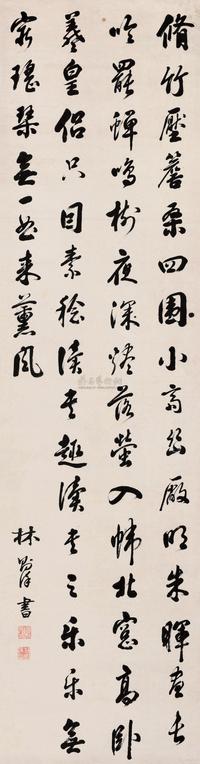 脩竹壓簷桑四圍小齋幽廠明朱暉晝長
吟罷蟬鳴樹夜深燼落螢入幃北窗高臥
羲皇侶只因素稔讀書趣讀書之樂樂無
窮瑤琴無一曲來薰風
林則徐書